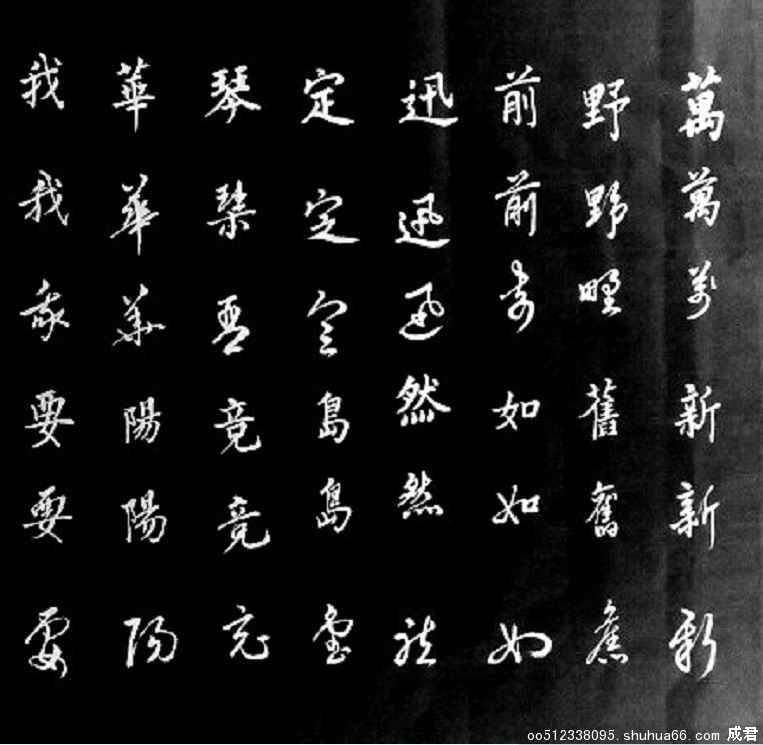 萬萬萬新新新
野野野舊舊舊
前前前如如如
迅迅迅然然然
定定定島島島
琴琴琴竟竟竟
華華華陽陽陽
我我我要要要
oo512338095. shuhua66.com 成君